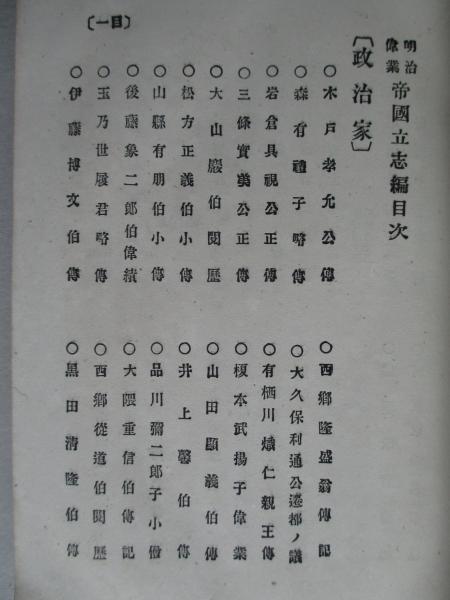 明治偉業 帝國立志編目次
〔政治家〕
○木戸孝允公傳
○西鄕隆盛翁傳記
○森有禮子略傳
○大久保利通公遷都ノ議
○岩倉具視公正傳
○有栖川熾仁親王傳
○三條實美公正傳
○榎本武揚子偉業
○大山巖伯閱歷
○山田顯義伯傳
○松方正義伯小傳
○井上馨伯傳
○山縣有朋伯小傳
○品川彌二郎子小傳
○後藤象二郎伯偉績
○大隈重信伯傳記
○玉乃世履君略傳
○西鄕從道伯閱歷
○伊藤博文伯傳
○黑田清隆伯傳
〔目一〕